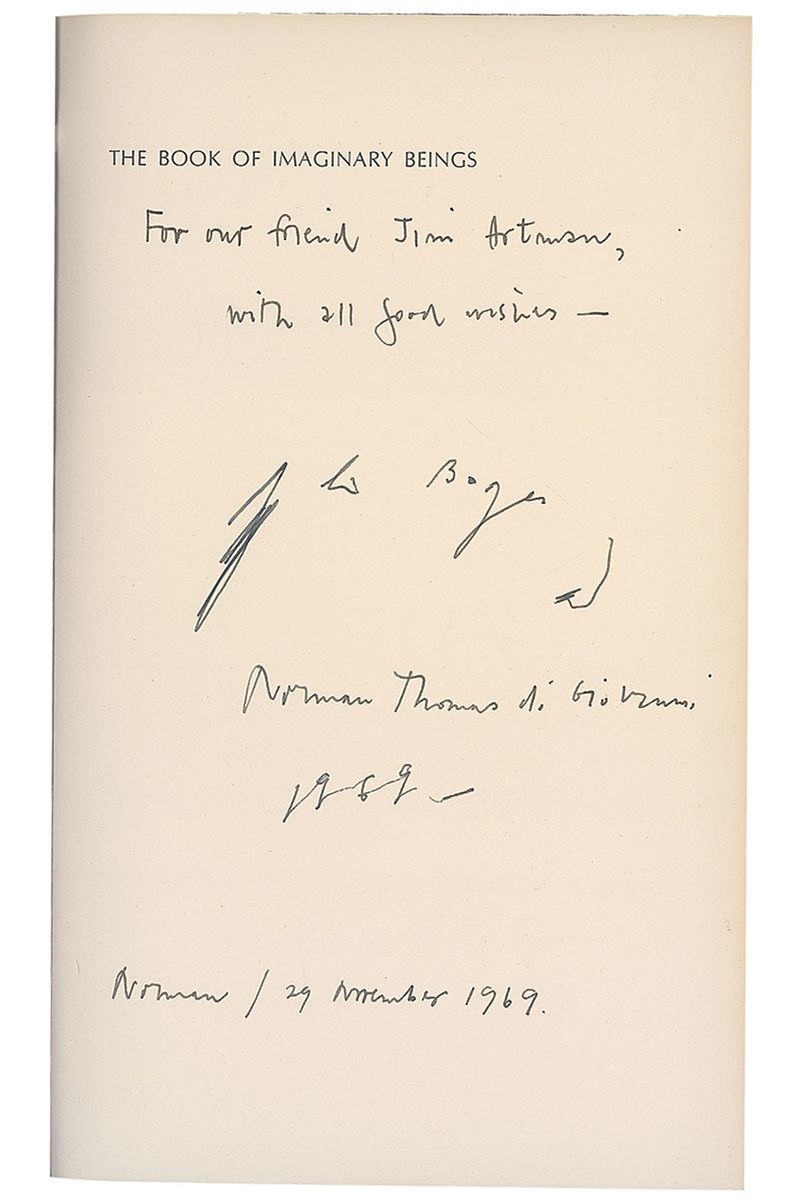 THE BOOK OF IMAGINARY BEINGS
For our friend Jim Artman,
with all good wishes —
J L Borges
Norman Thomas di Giovanni
1969 —
Norman / 29 November 1969.